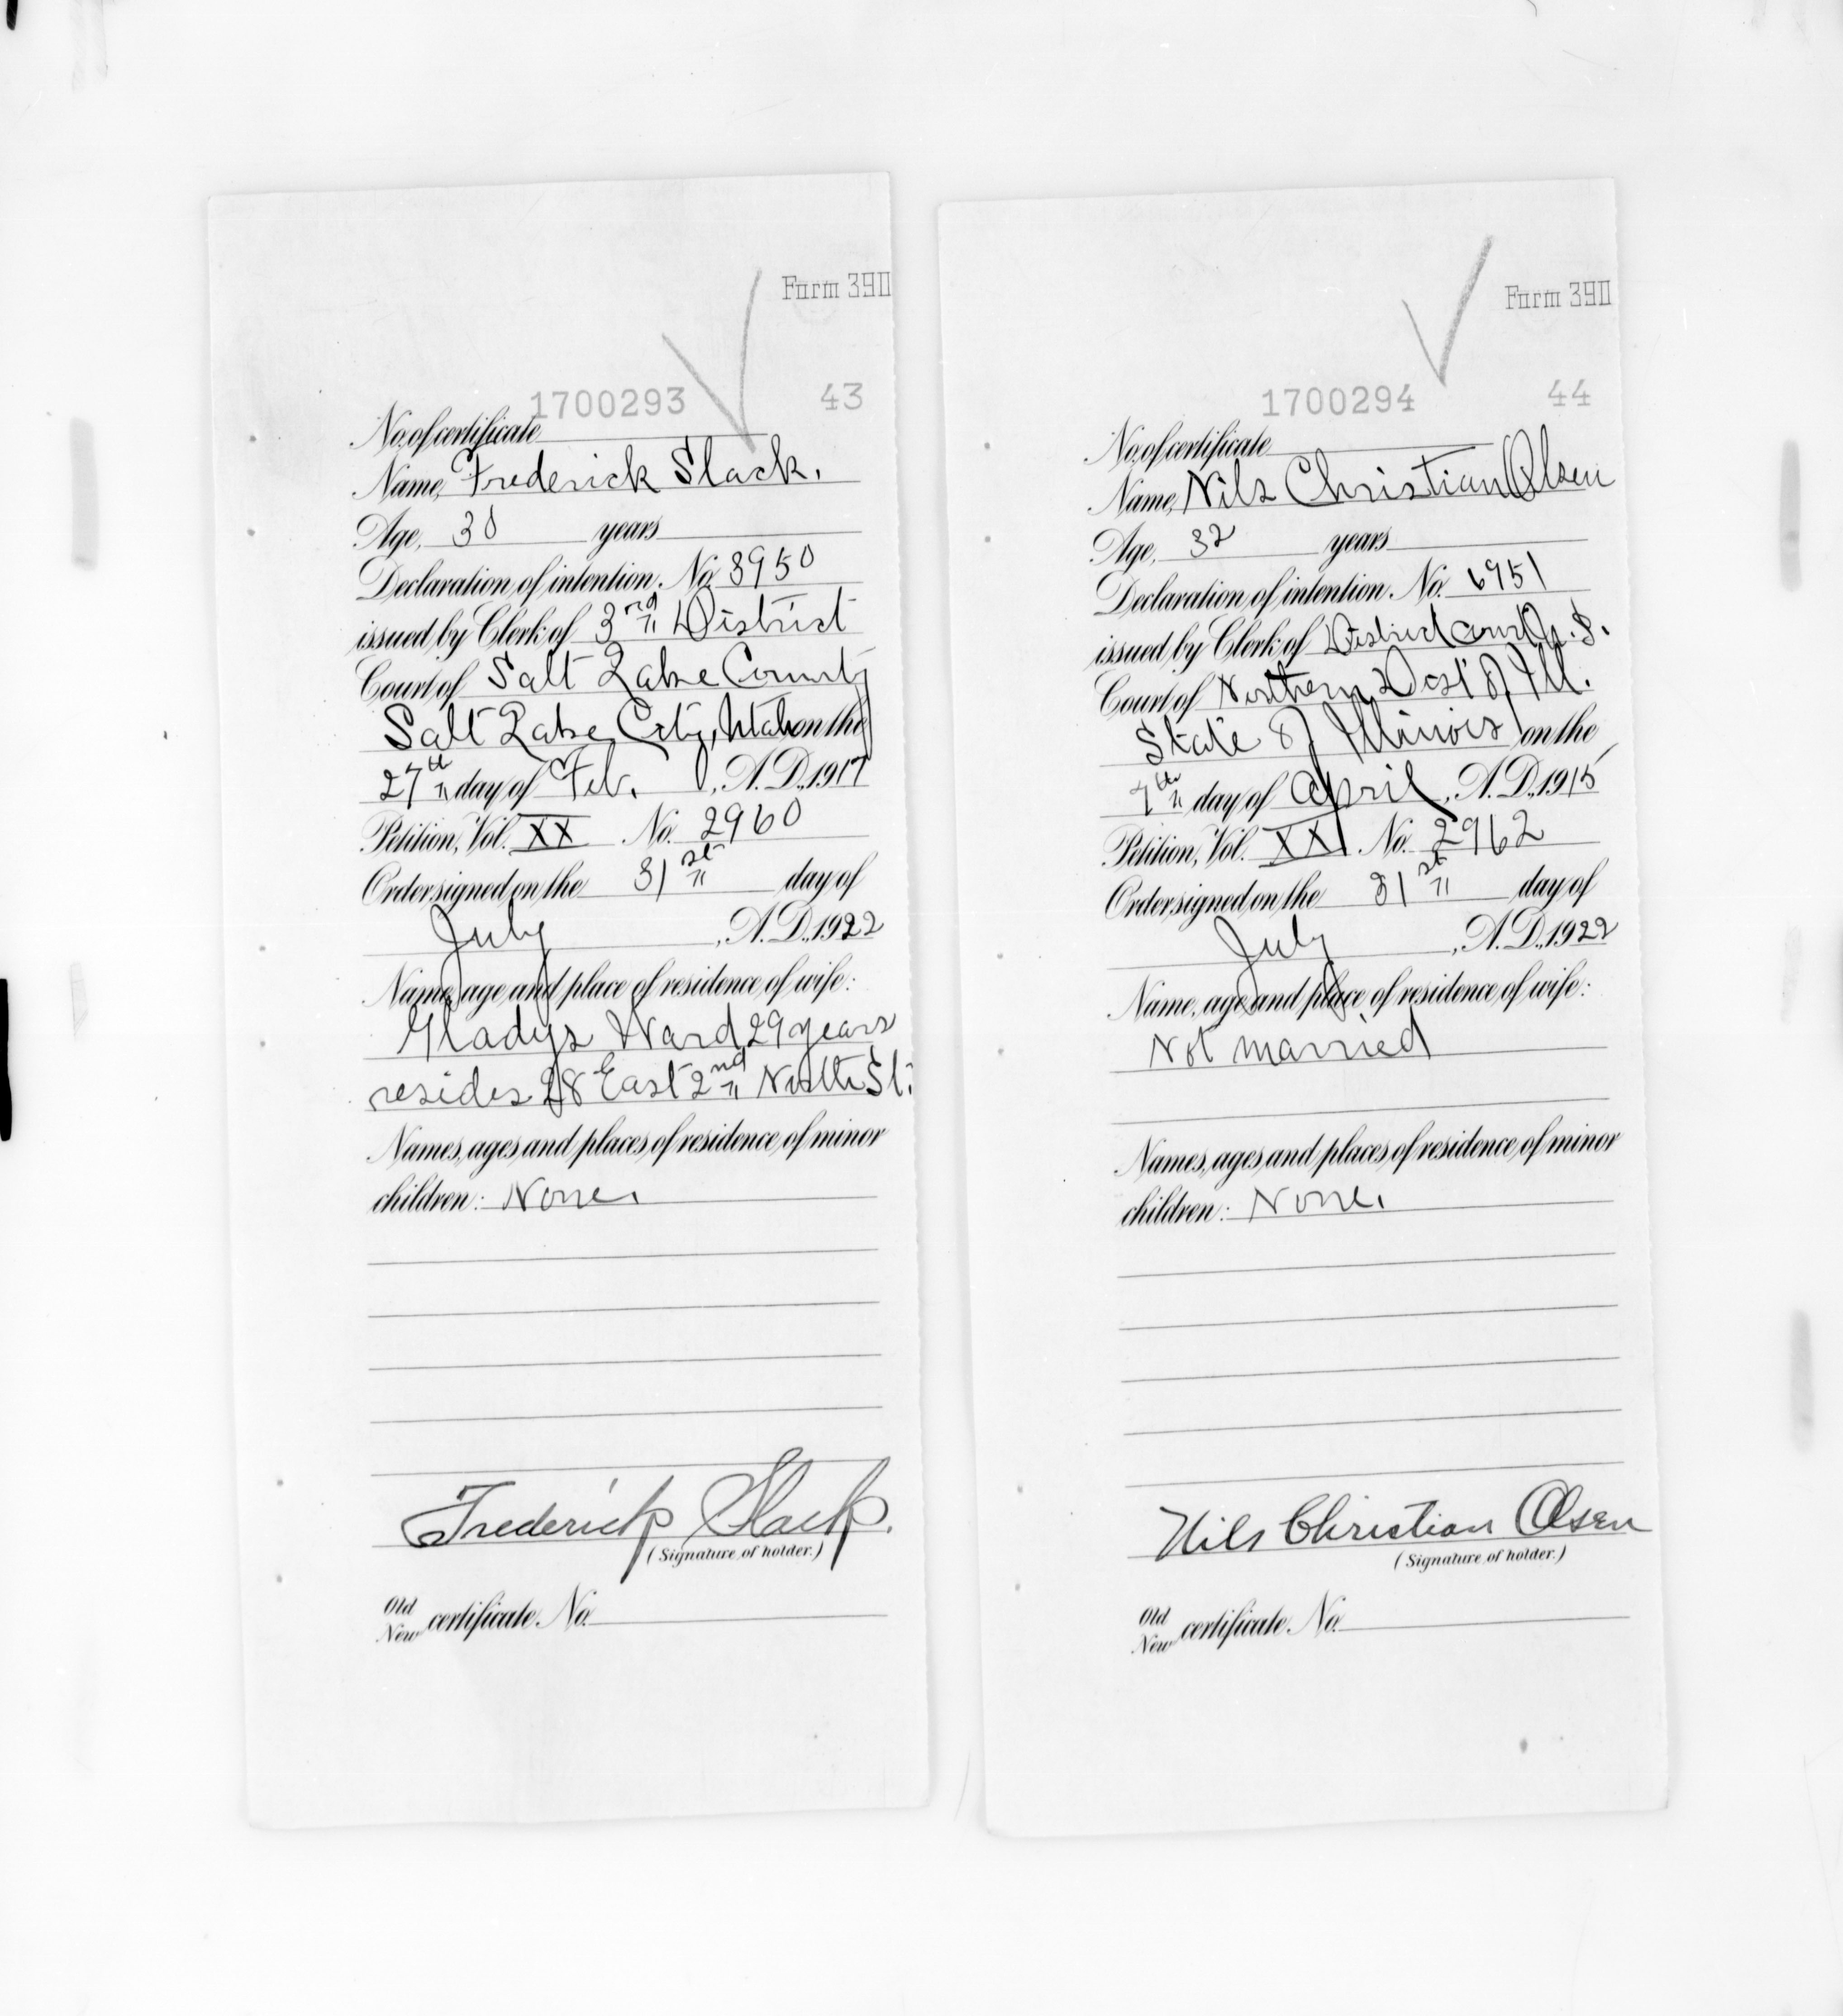 Form 390
1700293 43
No. of certificate
Name, Frederick Slack.
Age, 30 years
Declaration of intention, No. 3950
issued by Clerk of 3rd District
Court of Salt Lake County
Salt Lake City, Utah on the
27th day of Feb. , A.D., 1917
Petition, Vol. XX No. 2960
Order signed on the 31st day of
July , A.D., 1922
Name, age and place of residence of wife:
Gladys Ward 29 years
resides 28 East 2nd North St.
Names, ages and places of residence of minor
children: None.
Frederick Slack.
(Signature of holder.)
Old
New certificate No.
Form 390
1700294 44
No. of certificate
Name, Nils Christian Olsen
Age, 32 years
Declaration of intention, No. 6951
issued by Clerk of District Court U.S.
Court of Northern Dist of Ill.
State of Illinois on the
7th day of April , A.D., 1915
Petition, Vol. XX No. 2962
Order signed on the 31st day of
July , A.D., 1922
Name, age and place of residence of wife:
Not married
Names, ages and places of residence of minor
children: None.
Nils Christian Olsen
(Signature of holder.)
Old
New certificate No.